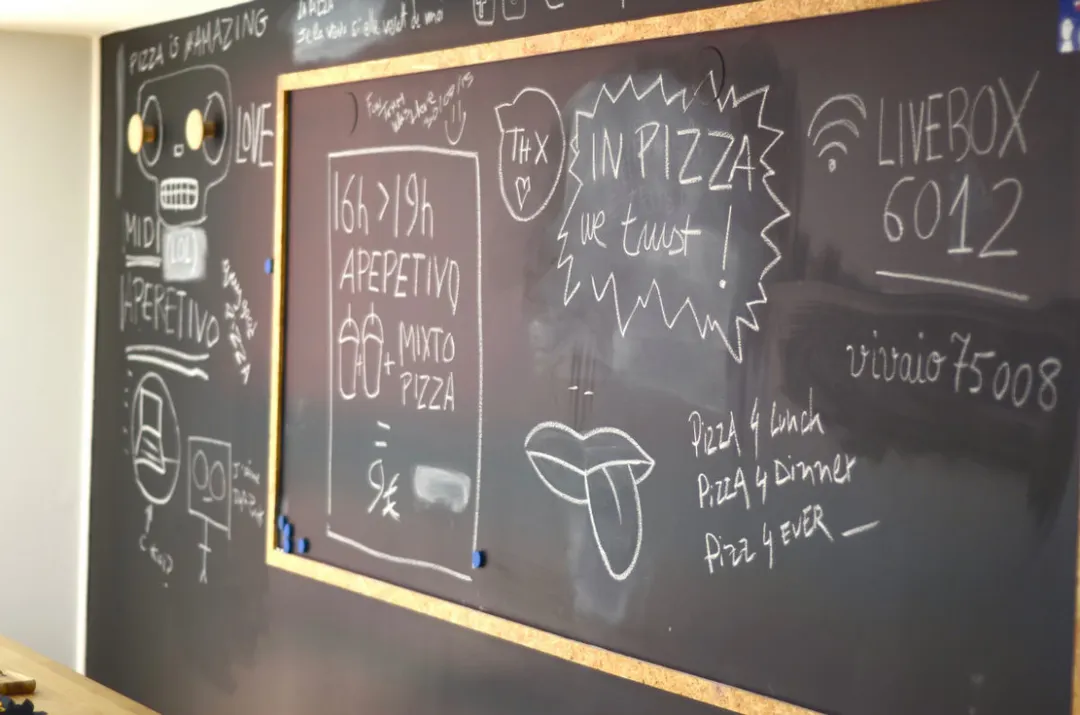 PIZZA is #AMAZING
LOVE
MIDI
LOL
APERETIVO
LA PIZZA
16h > 19h
APEPETIVO
+
+ MIXTO
PIZZA
=
9€
THX
IN PIZZA
we trust !
LIVEBOX
6012
vivaio75008
PizzA 4 Lunch
PizzA 4 Dinner
Pizz 4 EVER